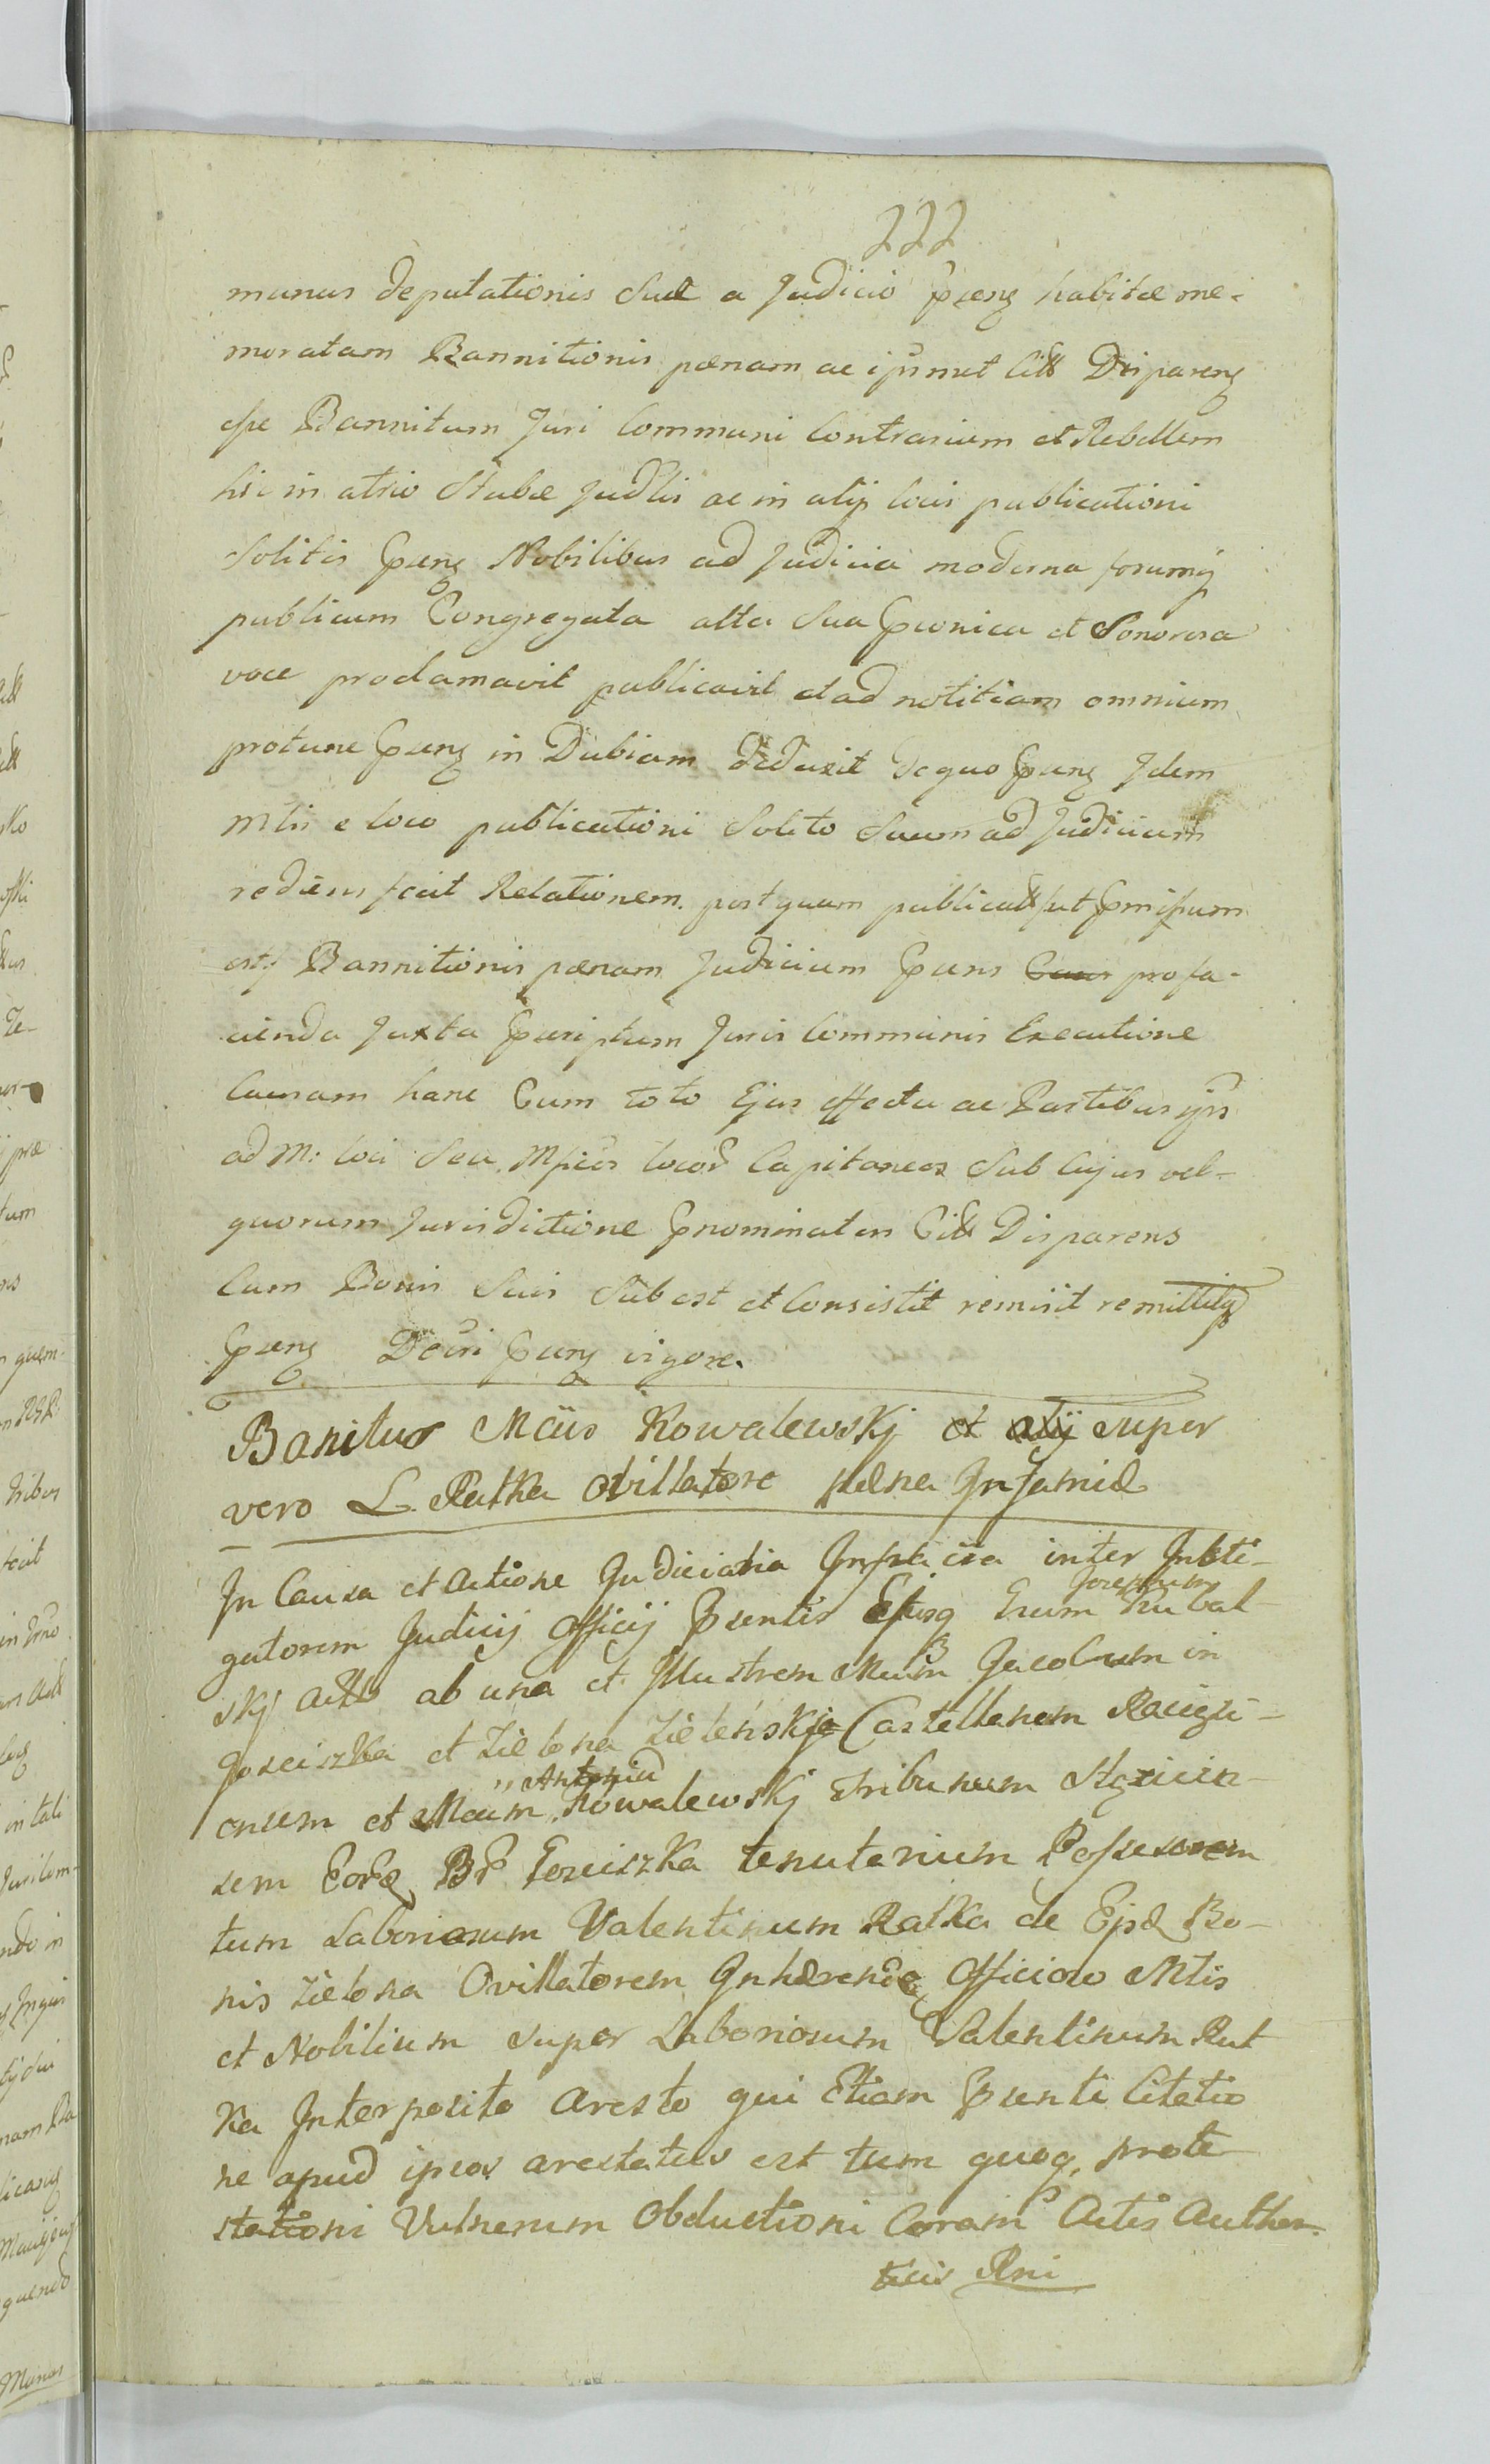 222
munus deputationis Suæ a Judicio pseng habitæ me-
moratam Bannitionis pœnam ac ipsumet Citt Dispareng
esse Bannitum Juri Communi Contrarium et Rebellem
hic in atrio Stubæ Judlis ac in alijs locis publicationi
Solitis pseng Nobilibus ad Judicia moderna forumq
publicum Congregata alta Sua pconica et Sonorosa
voce proclamavit publicavit et ad notitiam omnium
protunc pseng in Dubiam deduxit de quo pseng Idem
Mlis e loco publicationi Solito Suum ad Judicium
rediens fecit Relationem. post quam publicatt ut pmissum
est Bannitionis pœnam Judicium psens pro fa-
cienda Juxta pscriptum Juris Communis Executione
Causam hanc Cum toto Ejus effectu ac Partibus ijs
ad M: loci Seu Mficos locor Capitaneos Sub Cujus vel-
quorum Jurisdictione pnominatus Citt Disparens
Cum Bonis Suis Subest et Consistit remisit remittitq
pseng Decri pseng vigore.
Banitus Mcus Kowalewskj et alij super
vero L. Ratka Ovillatore pæna Infamiæ
In Causa et Actione Judiciaria Inter Insti-
gatorem Judicij Officij Psentis Ejusq Grum Josephum
skj Actt ab una et Illustrem Mcum Jacobum in
Gosciszka et Zielona Zielenskj Castellanum Raciązi-
ensem et Mcum Antoniu Kowalewskj Tribunum
sem Eorq Br Gosciszka tenutarium Possesorem
tum Laboriosum Valentinum Ratka de Ejsd Bo-
nis Zielona Ovillatorem Inhærendo Officioso Mtis
et Nobilium super Laboriosum Valentinum Rat
ka Interposito Aresto qui Etiam Psenti Citatio
ne apud ipsos arestatus est tum quoq prote
stationi Vulnerum Obductioni Coram Actis Authen-
ticis Rni